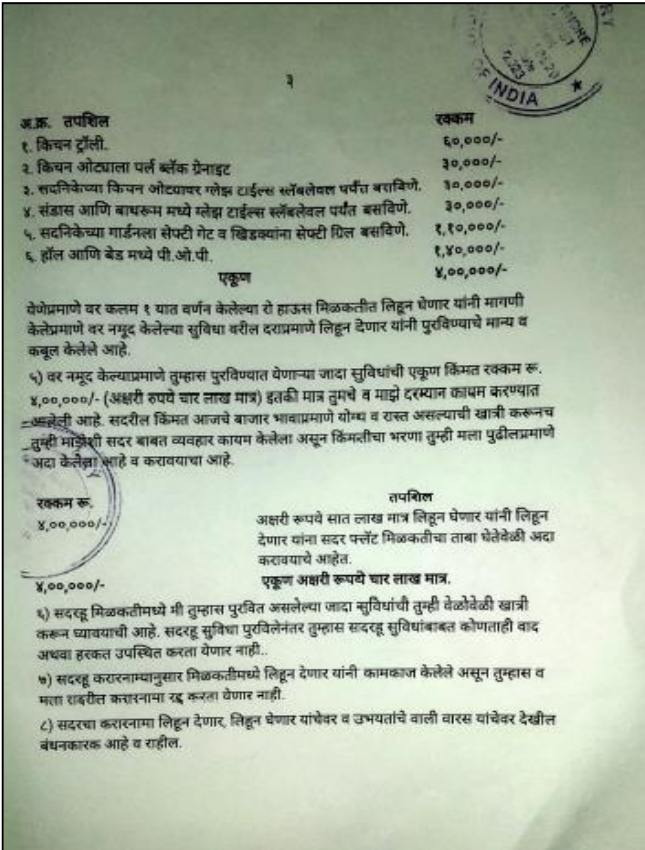 OF INDIA
2023
३
अ.क्र. तपशिल रक्कम
१. किचन ट्रॉली. ६०,०००/-
२. किचन ओट्याला पर्ल ब्लॅक ग्रेनाइट ३०,०००/-
३. सदनिकेच्या किचन ओट्यावर ग्लेझ टाईल्स स्लॅबलेवल पर्यंत बसविणे. ३०,०००/-
४. संडास आणि बाथरूम मध्ये ग्लेझ टाईल्स स्लॅबलेवल पर्यंत बसविणे. ३०,०००/-
५. सदनिकेच्या गार्डनला सेफ्टी गेट व खिडक्यांना सेफ्टी ग्रिल बसविणे. १,१०,०००/-
६. हॉल आणि बेड मध्ये पी.ओ.पी. १,४०,०००/-
एकूण ४,००,०००/-
येणेप्रमाणे वर कलम १ यात वर्णन केलेल्या रो हाऊस मिळकतीत लिहून घेणार यांनी मागणी
केलेप्रमाणे वर नमूद केलेल्या सुविधा वरील दराप्रमाणे लिहून देणार यांनी पुरविण्याचे मान्य व
कबूल केलेले आहे.
५) वर नमूद केल्याप्रमाणे तुम्हास पुरविण्यात येणाऱ्या जादा सुविधांची एकूण किंमत रक्कम रू.
४,००,०००/- (अक्षरी रुपये चार लाख मात्र) इतकी मात्र तुमचे व माझे दरम्यान कायम करण्यात
आलेली आहे. सदरील किंमत आजचे बाजार भावाप्रमाणे योग्य व रास्त असल्याची खात्री करूनच
तुम्ही माझेशी सदर बाबत व्यवहार कायम केलेला असून किंमतीचा भरणा तुम्ही मला पुढीलप्रमाणे
अदा केलेला आहे व करावयाचा आहे.
रक्कम रू. तपशिल
४,००,०००/- अक्षरी रूपये सात लाख मात्र लिहून घेणार यांनी लिहून
देणार यांना सदर फ्लॅट मिळकतीचा ताबा घेतेवेळी अदा
करावयाचे आहेत.
४,००,०००/- एकूण अक्षरी रूपये चार लाख मात्र.
६) सदरहू मिळकतीमध्ये मी तुम्हास पुरवित असलेल्या जादा सुविधांची तुम्ही वेळोवेळी खात्री
करून घ्यावयाची आहे. सदरहू सुविधा पुरविलेनंतर तुम्हास सादरहू सुविधांबाबत कोणताही वाद
अथवा हरकत उपस्थित करता येणार नाही..
७) सदरहू करारनाम्यानुसार मिळकतीमध्ये लिहून देणार यांनी कामकाज केलेले असून तुम्हास व
मला सदरील करारनामा रद्द करता येणार नाही.
८) सदरचा करारनामा लिहून देणार, लिहून घेणार यांचेवर व उभयतांचे वाली वारस यांचेवर देखील
बंधनकारक आहे व राहील.